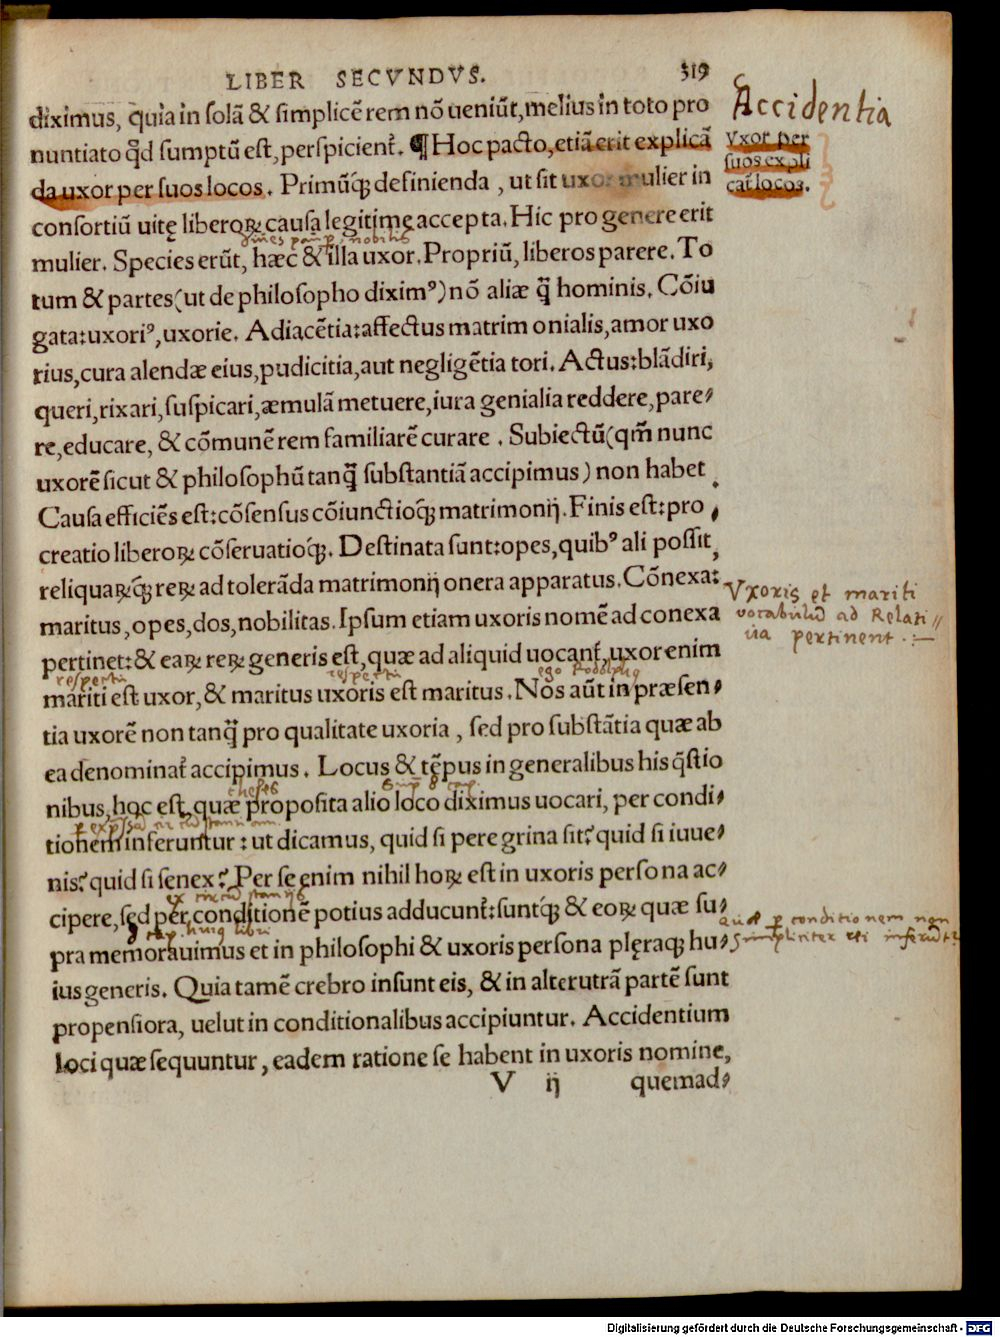 LIBER SECVNDVS. 319
diximus, quia in solã & simplicẽ rem nõ ueniũt, melius in toto pro
nuntiato qđ sumptũ est, perspicient᷑. ¶ Hoc pacto, etiã erit explicã
da uxor per suos locos. Primũqꝫ definienda, ut sit uxor mulier in
consortiũ uitę liberoꝝ causa legitime accepta. Hic pro genere erit
mulier. Species erũt, hæc & illa uxor. Propriũ, liberos parere. To
tum & partes (ut de philosopho diximꝰ) nõ aliæ q̃ hominis. Cõiu
gata: uxoriꝰ, uxorie. Adiacẽtia: affectus matrimonialis, amor uxo
rius, cura alendæ eius, pudicitia, aut negligẽtia tori. Actus: blãdiri,
queri, rixari, suspicari, æmulã metuere, iura genialia reddere, pare⸗
re, educare, & cõmunẽ rem familiarẽ curare. Subiectũ (qm̃ nunc
uxorẽ sicut & philosophũ tanq̃ substantiã accipimus) non habet.
Causa efficiẽs est: cõsensus cõiunctioqꝫ matrimonij. Finis est: pro⸗
creatio liberoꝝ cõseruatioqꝫ. Destinata sunt: opes, quibꝰ ali possit,
reliquaꝝqꝫ reꝝ ad tolerãda matrimonij onera apparatus. Cõnexa:
maritus, opes, dos, nobilitas. Ipsum etiam uxoris nomẽ ad conexa
pertinet: & eaꝝ reꝝ generis est, quæ ad aliquid uocant᷑, uxor enim
mariti est uxor, & maritus uxoris est maritus. Nos aũt in præsen⸗
tia uxorẽ non tanq̃ pro qualitate uxoria, sed pro substãtia quæ ab
ea denominat᷑ accipimus. Locus & tẽpus in generalibus his q̃stio
nibus, hoc est, quæ proposita alio loco diximus uocari, per condi⸗
tionem inferuntur: ut dicamus, quid si peregrina sit? quid si iuue⸗
nis? quid si senex? Per se enim nihil hoꝝ est in uxoris persona ac⸗
cipere, sed per conditionẽ potius adducunt᷑: suntqꝫ & eoꝝ quæ su⸗
pra memorauimus et in philosophi & uxoris persona plęraqꝫ hu⸗
ius generis. Quia tamẽ crebro insunt eis, & in alterutrã partẽ sunt
propensiora, uelut in conditionalibus accipiuntur. Accidentium
loci quæ sequuntur, eadem ratione se habent in uxoris nomine,
V ij quemad⸗
Accidentia
Vxor per
suos expli
cat᷑ locos.
Vxoris et mariti
vocabulũ ad Relati
ua pertinent
nobilis
respectu
respectu
ego Rodolphꝰ
theses
cap. huiꝰ libri
Quæ ꝑ conditionem non
simpliciter rei inferũt᷑
Digitalisierung gefördert durch die Deutsche Forschungsgemeinschaft - DFG